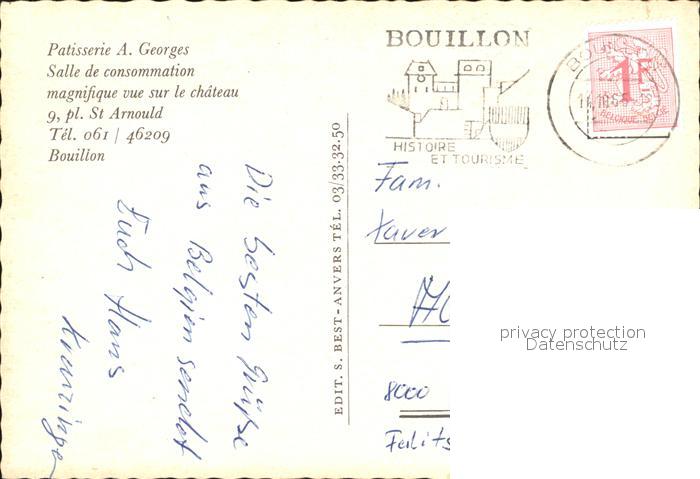 Patisserie A. Georges
Salle de consommation
magnifique vue sur le château
9, pl. St Arnould
Tél. 061 | 46209
Bouillon
BOUILLON
HISTOIRE
ET TOURISME
1F
BELGIQUE
EDIT. S. BEST - ANVERS TÉL. 03/33.32.50
Die besten Grüße
aus Belgien sendet
Euch Hans
Fam.
Xaver
8000
privacy protection
Datenschutz